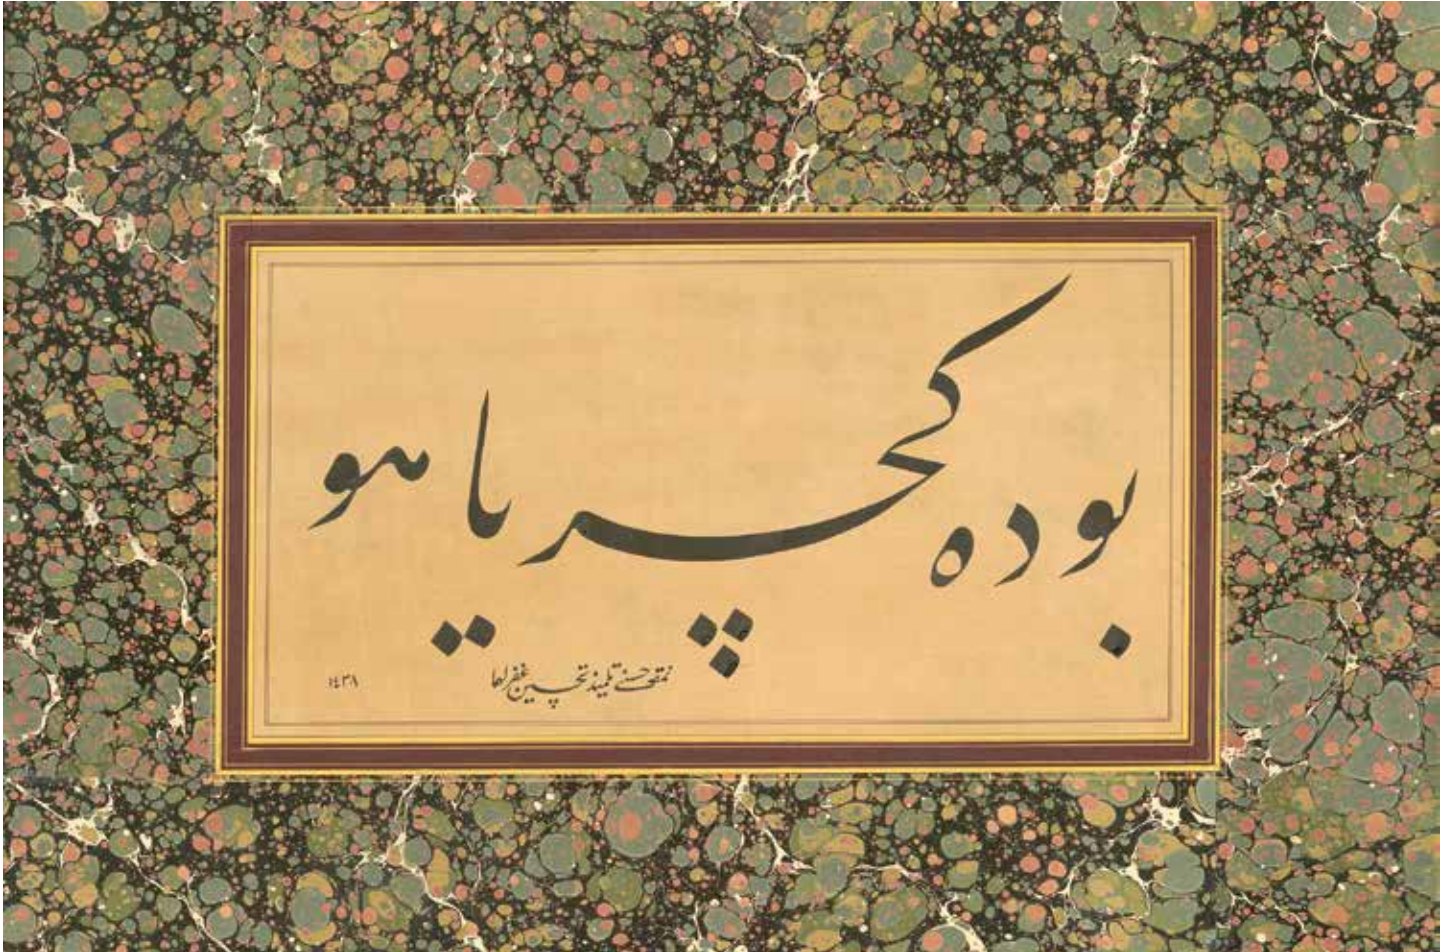 بو ده کچر یا هو
نمقه حسنی تلمیذ تحسین غفر لهما
١٤٣٨